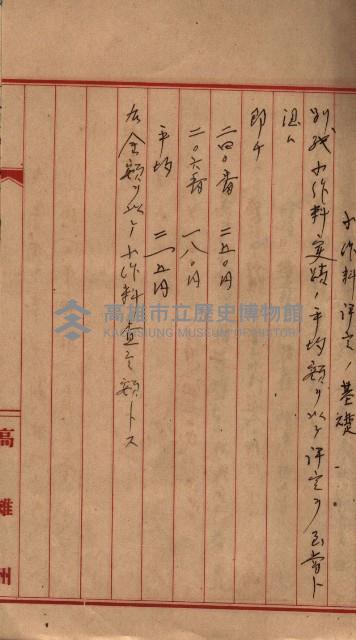 小作料評定ノ基礎
別紙小作料実績ノ平均額ヲ以テ評定ヲ至当ト
認ム
即チ
二四〇番 二五〇円
二〇六番 一八〇円
平均 二一五円
右金額ヲ以テ小作料査定額トス
高雄州
高雄市立歷史博物館
KAOHSIUNG MUSEUM OF HISTORY